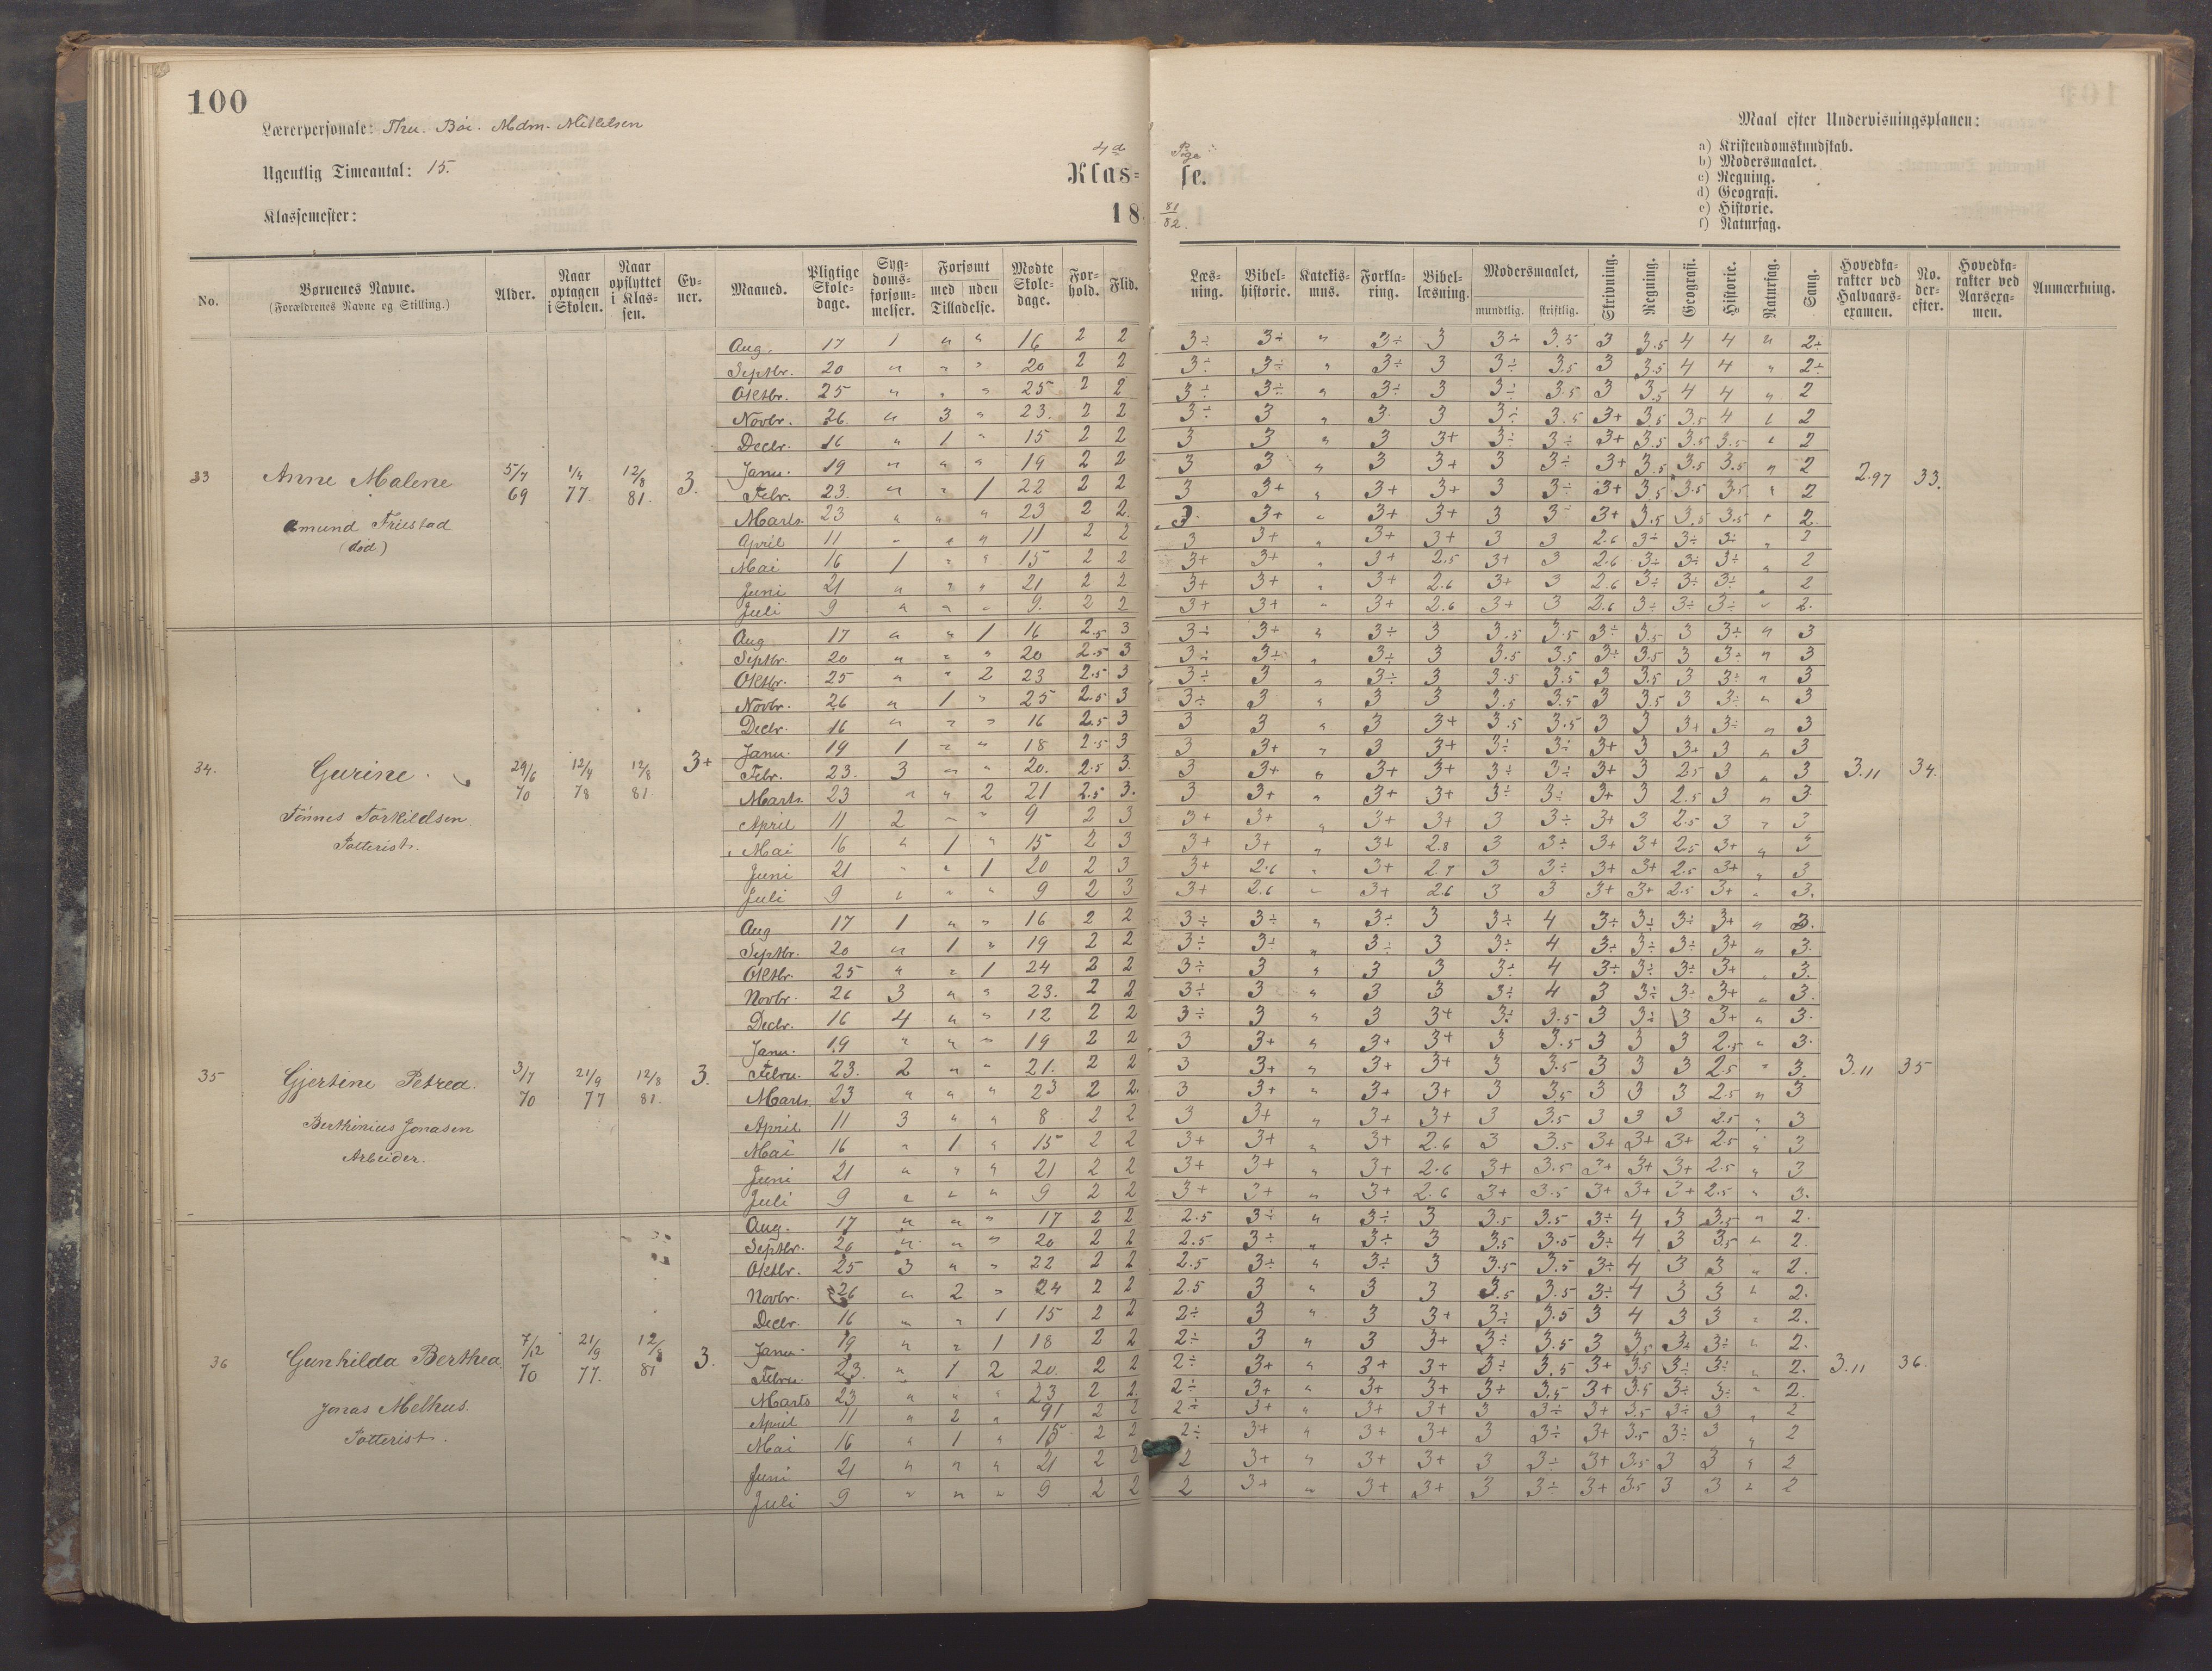 100
Lærerpersonale: Thu. Böe. Mdm. Mikkelsen
Ugentlig Timeantal: 15.
Klassemester:
4de Pige
Klas= se.
18 81/82.
Maal efter Undervisningsplanen:
a) Kristendomskundskab.
b) Modersmaalet.
c) Regning.
d) Geografi.
e) Historie.
f) Naturfag.
No. | Børnenes Navne. (Forældrenes Navne og Stilling.) | Alder. | Naar optagen i Skolen. | Naar opflyttet i Klassen. | Evner. | Maaned. | Pligtige Skoledage. | Sygdomsforsømmelser. | Forsømt med / uden Tilladelse. | Mødte Skoledage. | Forhold. | Flid. | Læsning. | Bibelhistorie. | Katekismus. | Forklaring. | Bibellæsning. | Modersmaalet, mundtlig. / skriftlig. | Skrivning. | Regning. | Geografi. | Historie. | Naturfag. | Sang. | Hovedkarakter ved Halvaarsexamen. | No. derefter. | Hovedkarakter ved Aarsexamen. | Anmærkning.
33 Anne Malene 5/7 69 1/4 77. 12/8 81. 3. 2.97 33.
Amund Friestad
(död)
Aug. 17 1 " " 16 2 2 3÷ 3÷ " 3÷ 3 3÷ 3.5 3 3.5 4 4 " 2÷
Septbr. 20 " " " 20 2 2 3÷ 3÷ " 3÷ 3 3÷ 3.5 3 3.5 4 4 " 2÷
Oktbr. 25 " " " 25 2 2 3÷ 3÷ " 3÷ 3 3÷ 3.5 3 3.5 4 4 " 2
Novbr. 26. " 3 " 23. 2 2 3÷ 3 " 3 3 3÷ 3.5 3+ 3.5 3.5 4 " 2
Decbr. 16 " 1 " 15 2 2 3 3 " 3 3+ 3÷ 3÷ 3+ 3.5 3.5 3.5 " 2
Janu. 19 " " " 19 2 2 3 3 " 3 3+ 3 3÷ 3+ 3.5 3.5 3.5 " 2
Febr. 23. " " 1 22 2 2 3 3+ " 3+ 3+ 3 3÷ 3+ 3.5 3.5 3.5 " 2
Marts. 23 " " " 23 2 2. 3. 3+ " 3+ 3+ 3 3÷ 3+ 3.5 3.5 3.5 " 2.
April 11 " " " 11 2 2 3 3+ " 3+ 3+ 3 3 2.6 3÷ 3÷ 3÷ " 2
Mai 16 1 " " 15 2 2 3+ 3+ " 3+ 2.5 3+ 3 2.6 3÷ 3÷ 3÷ " 2
Juni 21 " " " 21 2 2 3+ 3+ " 3+ 2.6 3+ 3 2.6 3÷ 3÷ 3÷ " 2
Juli 9 " " " 9. 2 2 3+ 3+ " 3+ 2.6 3+ 3 2.6 3÷ 3÷ 3÷ " 2.
34. Gurine. 29/6 70 12/4 78 12/8 81. 3+ 3.11 34.
Tönnes Torkildsen.
Potterist.
Aug 17 " " 1 16 2.5 3 3÷ 3+ " 3÷ 3 3.5 3.5 3÷ 3.5 3 3÷ " 3
Septbr. 20 " " " 20 2.5 3 3÷ 3÷ " 3÷ 3 3.5 3.5 3÷ 3.5 3 3÷ " 3
Oktbr. 25 " " 2 23 2.5 3 3÷ 3 " 3÷ 3 3.5 3.5 3 3.5 3 3÷ " 3
Novbr. 26 " 1 " 25 2.5 3 3÷ 3 " 3 3 3.5 3.5 3 3.5 3 3÷ " 3
Decbr. 16 " " " 16 2.5 3 3 3 " 3 3+ 3.5 3.5 3 3 3+ 3÷ " 3
Janu. 19 1 " " 18 2.5 3 3 3+ " 3 3+ 3÷ 3÷ 3+ 3 3+ 3 " 3
Febr. 23. 3 " " 20. 2.5 3. 3 3+ " 3+ 3+ 3÷ 3÷ 3+ 3 2.5 3 " 3
Marts. 23 " " 2 21 2.5 3. 3 3+ " 3+ 3+ 3÷ 3÷ 3+ 3 2.5 3 " 3
April 11 2 " " 9 2 3 3+ 3+ " 3+ 3+ 3 3÷ 3+ 3 2.5 3 " 3
Mai 16 " 1 " 15 2 3 3+ 3+ " 3+ 2.8 3 3÷ 3+ 3+ 2.5 3+ " 3
Juni 21 " " 1 20 2 3 3+ 2.6 " 3+ 2.7 3 3÷ 3+ 3+ 2.5 3+ " 3
Juli 9 " " " 9 2 3 3+ 2.6 " 3+ 2.6 3 3 3+ 3+ 2.5 3+ " 3.
35 Gjertine Petrea. 3/7 70 21/9 77 12/8 81. 3. 3.11 35
Berthinius Jonasen
Arbeider.
Aug 17 1 " " 16 2 2 3÷ 3÷ " 3÷ 3 3÷ 4 3÷ 3÷ 3÷ 3+ " 3.
Septbr. 20 " 1 " 19 2 2 3÷ 3÷ " 3÷ 3 3÷ 4 3÷ 3÷ 3÷ 3+ " 3.
Oktbr. 25 " " 1 24 2 2 3÷ 3 " 3 3 3÷ 4 3÷ 3÷ 3÷ 3+ " 3.
Novbr. 26 3 " " 23. 2 2 3÷ 3 " 3 3 3÷ 4 3 3÷ 3÷ 3+ " 3.
Decbr. 16 4 " " 12 2 2 3÷ 3 " 3 3+ 3÷ 3.5 3 3÷ 3 3+ " 3.
Janu. 19 " " " 19 2 2 3 3+ " 3+ 3+ 3 3.5 3 3 3 2.5 " 3.
Febru. 23. 2 " " 21. 2 2 3 3+ " 3+ 3+ 3 3.5 3 3 3 2.5 " 3.
Marts. 23 " " " 23 2 2. 3 3+ " 3+ 3+ 3 3.5 3 3 3 2.5 " 3
April 11 3 " " 8 2 2 3 3+ " 3+ 3+ 3 3.5 3 3 3 2.5 " 3
Mai 16 " 1 " 15 2 2 3+ 3+ " 3+ 2.6 3 3.5 3+ 3+ 3+ 2.5 " 3
Juni 21 " " " 21 2 2 3+ 3+ " 3+ 2.6 3+ 3.5 3+ 3+ 3+ 2.5 " 3
Juli 9 " " " 9 2 2 3+ 3+ " 3+ 2.6 3+ 3.5 3+ 3+ 3+ 2.5 " 3.
36 Gunhilda Berthea. 7/12 70 21/9 77. 12/8 81 3. 3.11 36.
Jonas Melhus.
Potterist.
Aug. 17 " " " 17 2 2 2.5 3÷ " 3÷ 3 3.5 3.5 3÷ 4 3 3.5 " 2.
Septbr. 20 " " " 20 2 2 2.5 3÷ " 3÷ 3 3.5 3.5 3÷ 4 3 3.5 " 2.
Oktbr. 25 3 " " 22 2 2 2.5 3÷ " 3÷ 3 3.5 3.5 3÷ 4 3 3 " 2.
Novbr. 26 " 2 " 24 2 2 2.5 3 " 3 3 3.5 3.5 3÷ 4 3 3 " 2.
Decbr. 16 " " 1 15 2 2 2÷ 3 " 3 3+ 3÷ 3.5 3 4 3 3 " 2.
Janu. 19 " " 1 18 2 2 2÷ 3 " 3 3+ 3÷ 3.5 3 3.5 3÷ 3÷ " 2.
Febru. 23. " 1 2 20. 2 2 2÷ 3+ " 3+ 3+ 3÷ 3.5 3+ 3.5 3÷ 3÷ " 2.
Marts 23 " " " 23 2 2. 2÷ 3+ " 3+ 3+ 3÷ 3.5 3+ 3.5 3÷ 3÷ " 2.
April 11 " 2 " 91 2 2 2÷ 3+ " 3+ 3+ 3 3÷ 3+ 3.5 3÷ 3 " 2
Mai 16 " 1 " 15 2 2 2÷ 3+ " 3+ 3+ 3 3÷ 3+ 3.5 3÷ 3 " 2
Juni 21 " " " 21 2 2 2 3+ " 3+ 3+ 3 3÷ 3+ 3.5 3 3 " 2
Juli 9 " " " 9 2 2 2 3+ " 3+ 3+ 3 3÷ 3+ 3.5 3 3 " 2